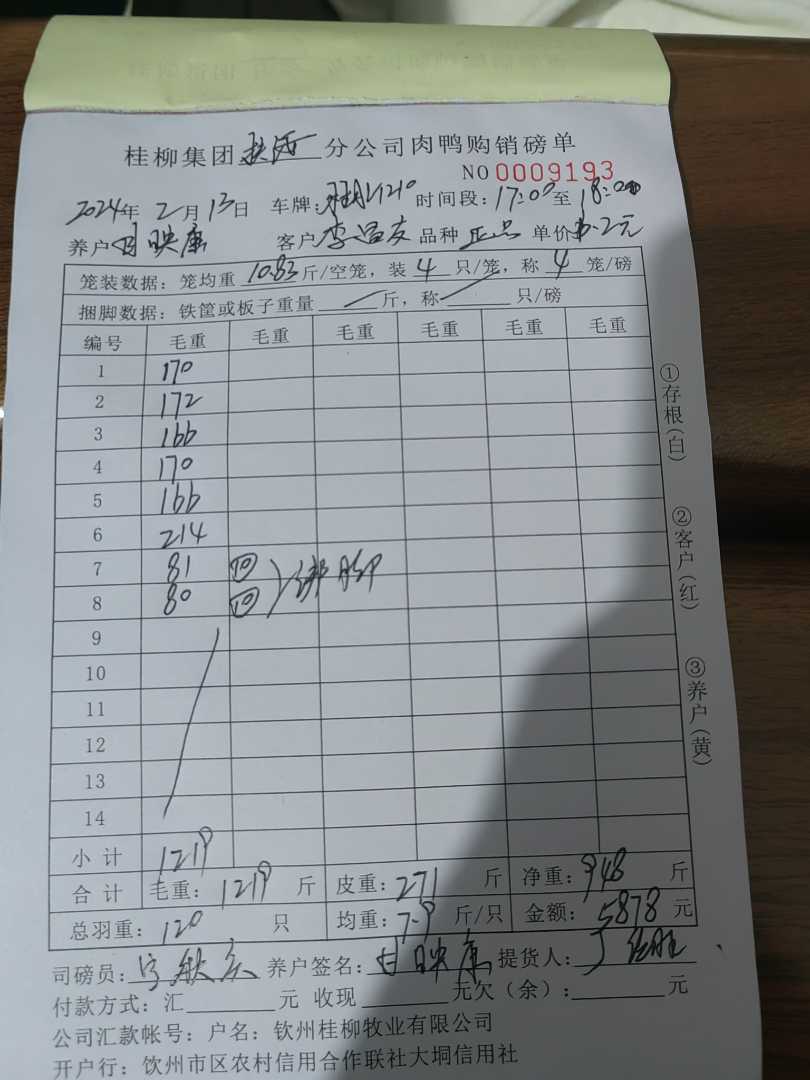 桂柳集团钦浦分公司肉鸭购销磅单
NO 0009193
2024年2月13日 车牌: 时间段:17:00至18:00
养户甘映康 客户李昌友 品种正品 单价6.2元
笼装数据:笼均重10.83斤/空笼,装4只/笼,称4笼/磅
捆脚数据:铁筐或板子重量 斤,称 只/磅
编号 毛重 毛重 毛重 毛重 毛重 毛重
1 170
2 172
3 166
4 170
5 166
6 214
7 81 ⑩
8 80 ⑩ 绑脚
9
10
11
12
13
14
小计 1219
合计 毛重:1219斤 皮重:271斤 净重:948斤
总羽重:120只 均重:7.9斤/只 金额:5878元
司磅员: 养户签名:甘映康 提货人:
付款方式:汇 元 收现 元欠(余): 元
公司汇款帐号:户名:钦州桂柳牧业有限公司
开户行:钦州市区农村信用合作联社大垌信用社
①存根(白)
②客户(红)
③养户(黄)